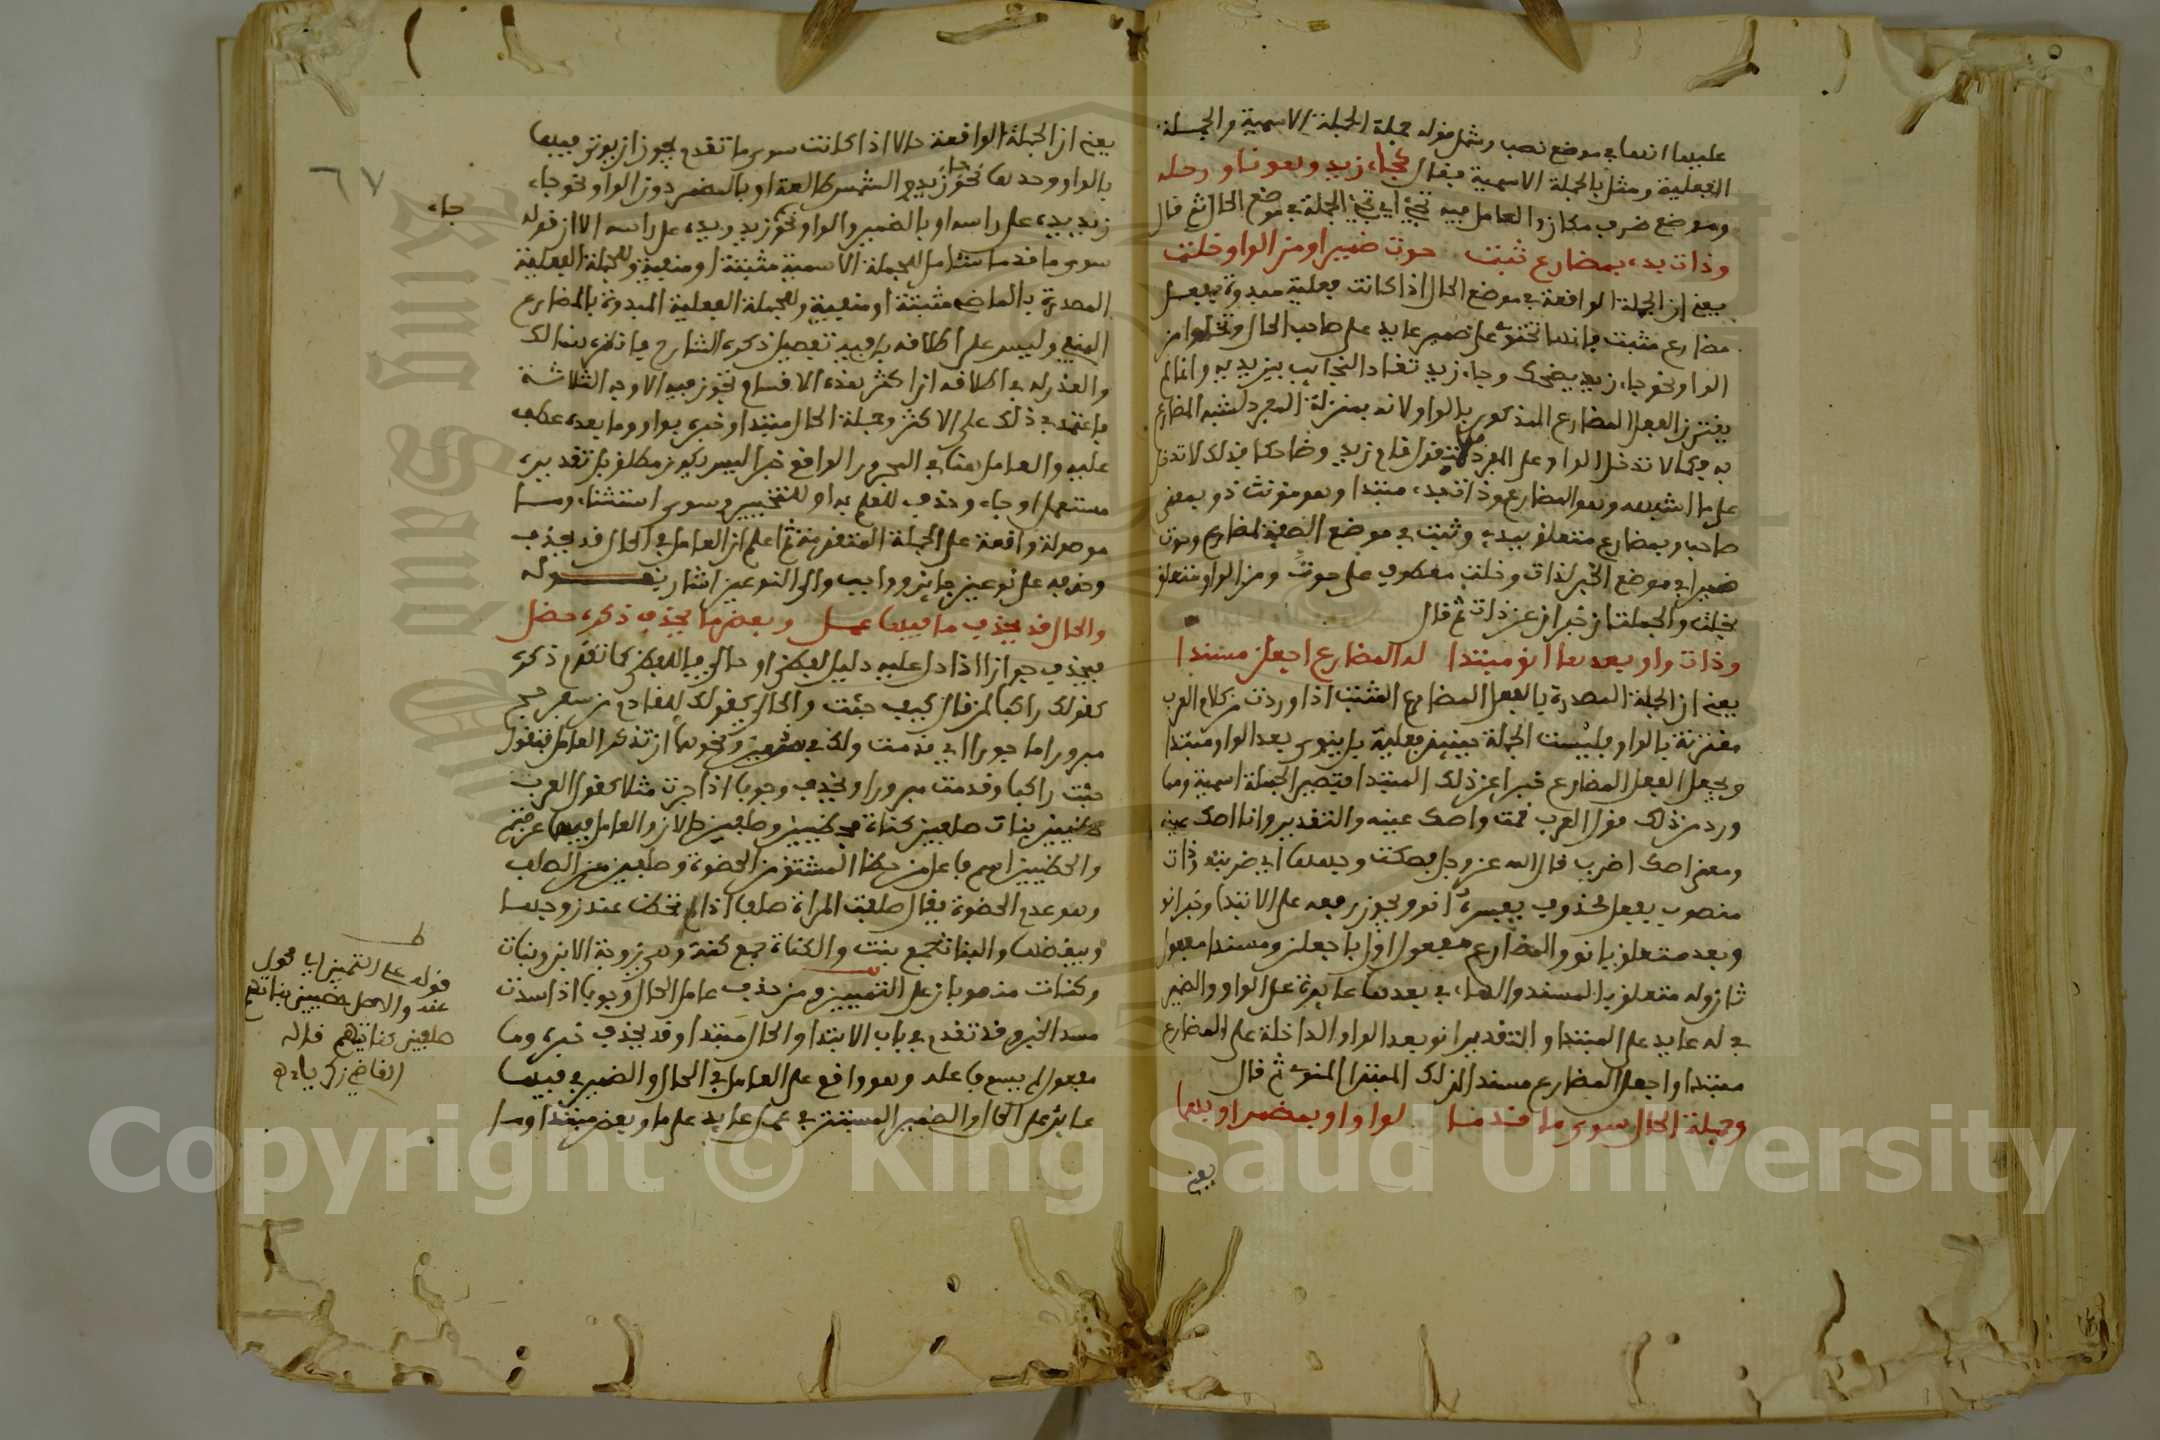 عليها انها في موضع نصب وشمل قوله جملة الجملة الاسمية والجملة
الفعلية ومثل بالجملة الاسمية فقال كجاء زيد وهو ناو رحله
وموضع ضرب مكان والعامل فيه تجيء اي تجيء الجملة في موضع الحال ثم قال
وذات بدء بمضارع ثبت حوت ضميرا ومن الواو خلت
يعني ان الجملة الواقعة في موضع الحال اذا كانت فعلية مبدوة بفعل
مضارع مثبت فانها تحتوي على ضمير عايد على صاحب الحال وتخلوا من
الواو نحو جاء زيد يضحك وجاء زيد تقاد النجايب بين يديه وانما لم
يقترن الفعل المضارع المذكور بالواو لانه بمنزلة المفرد لشبه المضارع
به فكما لا تدخل الواو على المفرد فلا تقول قام زيد وضاحكا فكذلك لا تدخل
على ما اشبهه وهو المضارع وذات بدء مبتدا وهو مونث ذو بمعنى
صاحب وبمضارع متعلق ببدء وثبت في موضع الصفة لمضارع وحوت
ضميرا في موضع الخبر لذات وخلت معطوف على حوت ومن الواو متعلق
بخلت والجملتان خبران عن ذات ثم قال
وذات واو بعدها انو مبتدا له المضارع اجعلن مسندا
يعني ان الجملة المصدرة بالفعل المضارع المثبت اذا وردت من كلام العرب
مقترنة بالواو فليست الجملة حينيذ فعلية بل ينوى بعد الواو مبتدا
ويجعل الفعل المضارع خبرا عن ذلك المبتدا فتصير الجملة اسمية ومما
ورد من ذلك قول العرب قمت واصك عينه والتقدير وانا اصك عينه
ومعنى اصك اضرب قال الله عز وجل فصكت وجهها اي ضربته وذات
منصوب بفعل محذوف يفسره انو ويجوز رفعه على الابتدا وخبر انو
وبعد متعلق بانو والمضارع مفعول اول باجعلن ومسندا مفعول
ثان وله متعلق بالمسند والهاء في بعدها عايدة على الواو والضمير
في له عايد على المبتدا والتقدير انو بعد الواو الداخلة على المضارع
مبتدا واجعل المضارع مسندا لذلك المبتدا المنوي ثم قال
وجملة الحال سوى ما قدما بواو او بمضمر او بهما
يعني
يعني ان الجملة الواقعة حالا اذا كانت سوى ما تقدم يجوز ان يوتى فيها
بالواو وحدها نحو جاء زيد والشمس طالعة او بالمضمر دون الواو نحو جاء
زيد يده على راسه او بالضمير والواو نحو جاء زيد ويده على راسه الا ان قوله
سوى ما قدما شامل للجملة الاسمية مثبتة او منفية وللجملة الفعلية
المصدرة بالماضي مثبتة او منفية وللجملة الفعلية المبدوة بالمضارع
المنفي وليس على اطلاقه بل فيه تفصيل ذكره الشارح فانظره هنالك
والعذر له في اطلاقه ان اكثر هذه الاقسام يجوز فيه الاوجه الثلاثة
فاعتمد في ذلك على الاكثر وجملة الحال مبتدا وخبره بواو وما بعده عطف
عليه والعامل هنا في المجرور الواقع خبرا ليس بكون مطلق بل تقديره
مستعمل او جاء وحذف للعلم به او للتخيير وسوى استثناء وما
موصولة واقعة على الجملة المتقدمة ثم اعلم ان العامل في الحال قد يحذف
وحذفه على نوعين جايز وواجب والى النوعين اشار بقوله
والحال قد يحذف ما فيها عمل وبعض ما يحذف ذكره حظل
فيحذف جوازا اذا دل عليه دليل لفظي او حالي فاللفظي كما تقدم ذكره
كقولك راكبا لمن قال كيف جئت والحالي كقولك للقادم من سفر حج
مبرورا ماجورا اي قدمت ولك في هذين ونحوهما ان تذكر العامل فتقول
جئت راكبا وقدمت مبرورا ويحذف وجوبا اذا جرت مثلا كقول العرب
حظيين بنات صلفين كنات فحظيين وصلفين حالان والعامل فيهما عرفتهم
والحظيين اسم فاعل من حظا المشتق من الحظوة وصلفين من الصلف
وهو عدم الحظوة يقال صلفت المراة صلفا اذا لم تحظ عند زوجها
وبيغضها والبنات جمع بنت والكنات جمع كنة وهي زوجة الابن وبنات
وكنات منصوبان على التمييز ومن حذف عامل الحال وجوبا اذا سدت
مسد الخبر وقد تقدم في باب الابتدا والحال مبتدا وقد يحذف خبره وما
مفعول لم يسم فاعله وهو واقع على العامل في الحال والضمير في فيها
عائد على الحال والضمير المستتر في عمل عايد على ما وبعض مبتدا وما
٦٧
جاء
قوله على التمييز اي محول
عنه والاصل حظيين بناتهم
صلفين كناتهم قاله
القاضي زكريا اه
Copyright © King Saud University